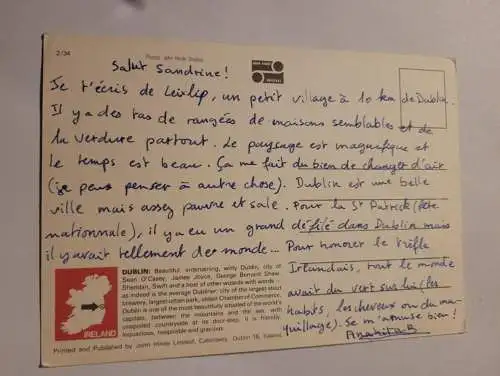 2/34
Salut Sandrine!
Je t'écris de Leixlip, un petit village à 10 km de Dublin.
Il y a des tas de rangées de maisons semblables et de
la verdure partout. Le paysage est magnifique et
le temps est beau. Ça me fait du bien de changer d'air
(je peux penser à autre chose). Dublin est une belle
ville mais assez pauvre et sale. Pour la St Patrick (fête
nationale), il y a eu un grand défilé dans Dublin mais
il y avait tellement de monde... Pour honorer le trèfle
Irlandais, tout le monde
avait du vert sur lui (les
habits, les cheveux ou du ma-
quillage). Je m'amuse bien!
DUBLIN: Beautiful, endearing, witty Dublin, city of
Sean O'Casey, James Joyce, George Bernard Shaw,
Sheridan, Swift and a host of other wizards with words –
as indeed is the average Dubliner; city of the largest stout
brewery, largest urban park, oldest Chamber of Commerce.
Dublin is one of the most beautifully situated of the world's
capitals, between the mountains and the sea, with
unspoiled countryside at its door-step. It is friendly,
loquacious, hospitable and gracious.
IRELAND
Printed and Published by John Hinde Limited, Cabinteely, Dublin 18, Ireland